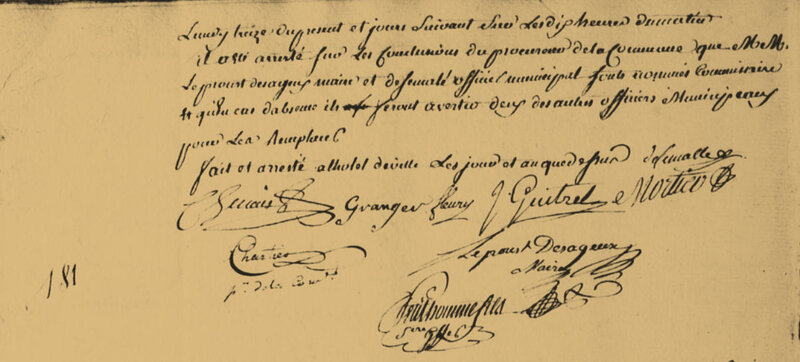 Lundy treize du present et jours suivant sur Les dix heures du matin
il a été arresté sur Les Conclusions du procureur de la Commune que M.M.
Le proust desageux maire et desemallé officier municipal sont nommés Commissaire
et qu'en cas d'absence ils seront avertir deux des autres officiers Municipeaux
pour Les Remplacés
fait et arresté a lhotel de ville Les jour et an que dessus desemallé
Granger fleury J Guitrel e Mortier
Chartier Le proust Desageux
pr. de la Com. Maire
181 Prudhomme fils